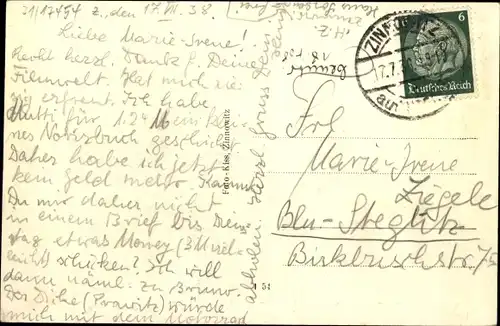 31/17454 Z., den 17.VII.38.
Liebe Marie-Irene!
Recht herzl. Dank f. Deine
Filmwelt. Hat mich rie-
sig erfreut. Ich habe
Mutti für 1.24 M ein klei-
nes Notizbuch geschickt.
Daher habe ich jetzt
kein Geld mehr. Kannst
Du mir daher nicht
in einem Brief bis Diens-
tag etwas Money (3M viel-
leicht) schicken? Ich will
dann näml. zu Bruno.
Der Dicke (Prawitz) würde
mich mit dem Motorrad
abholen. Herzl. Gruss Dein
Foto-Kiss, Zinnowitz
Zinnowitz
ZINNOWITZ
17.7.
6
Deutsches Reich
Frl
Marie-Irene
Ziegele
Bln-Steglitz
Birkbuschstr. 75